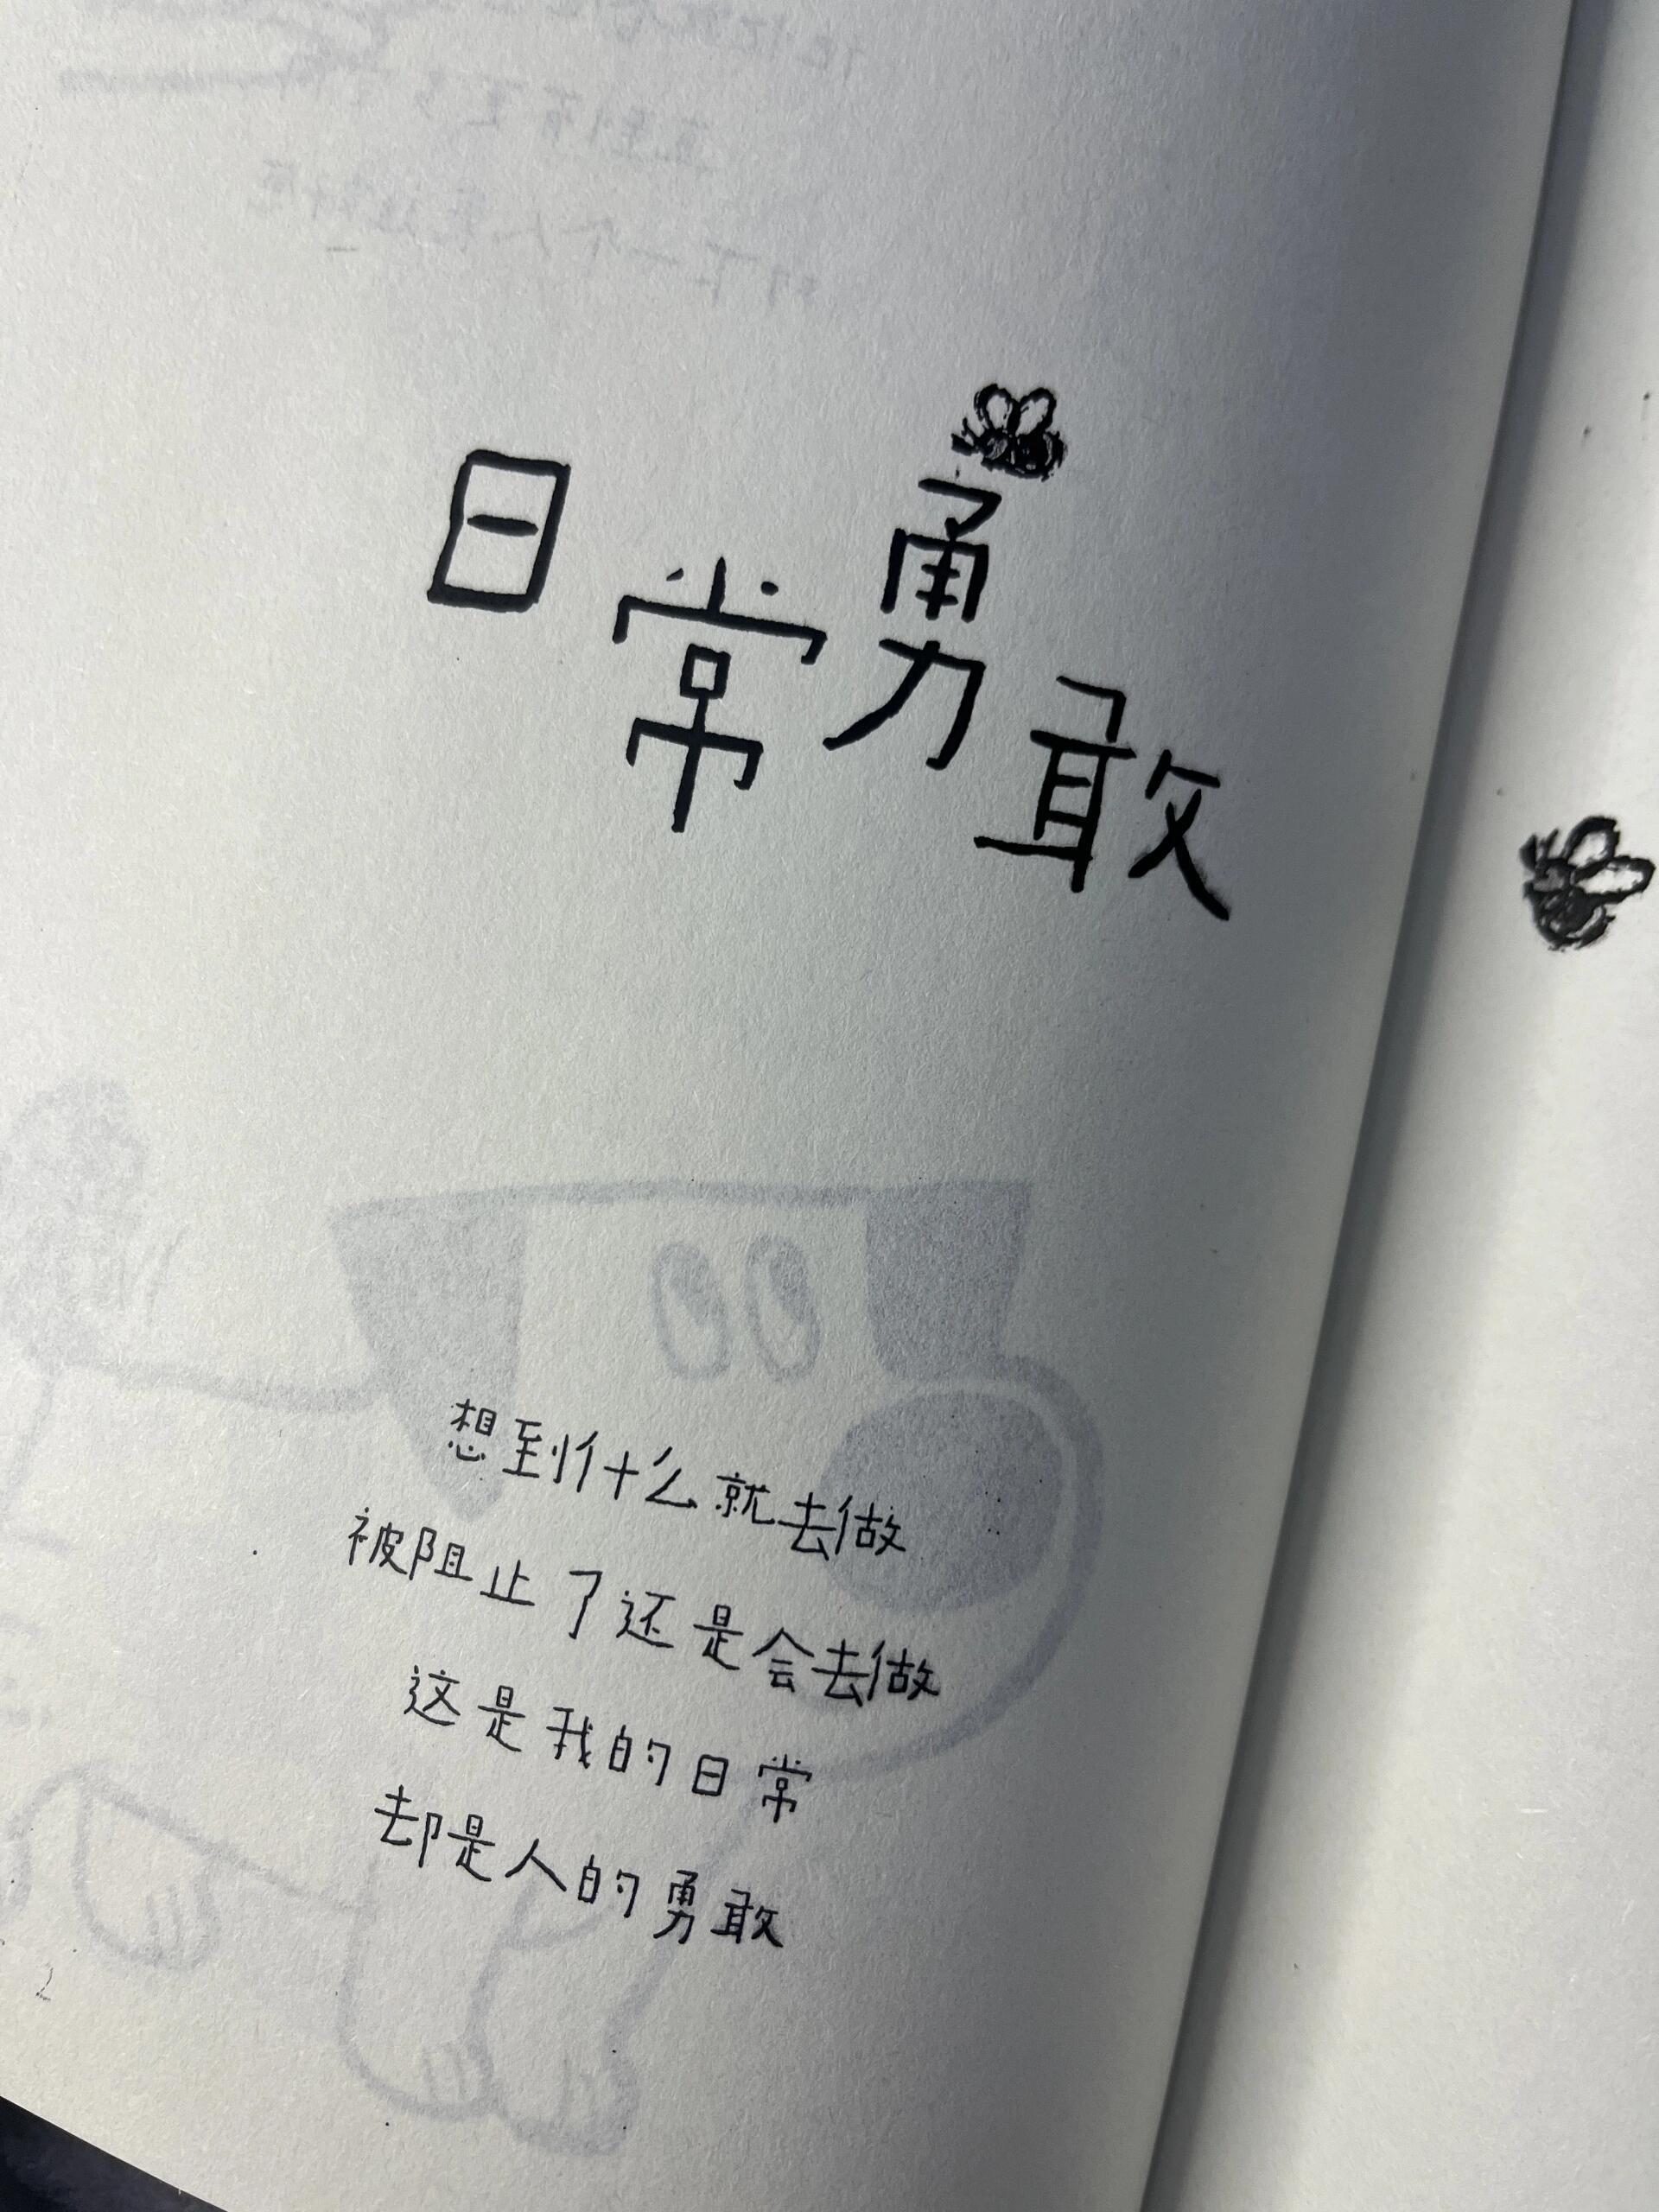 日常勇敢
想到什么就去做
被阻止了还是会去做
这是我的日常
却是人的勇敢